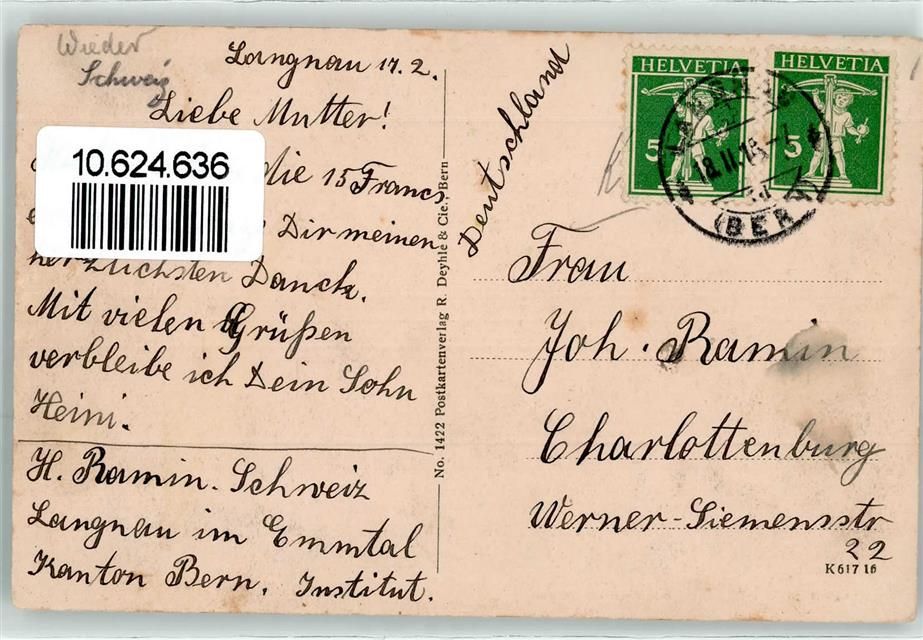 Wieder
Schweiz
Langnau 17.2.
Liebe Mutter!
10.624.636
Die 15 Francs
Dir meinen
herzlichsten Danck.
Mit vielen Grüßen
verbleibe ich Dein Sohn
Heini.
H. Ramin. Schweiz
Langnau im Emmtal
Kanton Bern. Institut.
No. 1422 Postkartenverlag R. Deyhle & Cie., Bern
Deutschland
HELVETIA
5
HELVETIA
5
LANGNAU
18.II.16
(BERN)
Frau
Joh. Ramin
Charlottenburg
Werner-Siemensstr
22
K 617 16